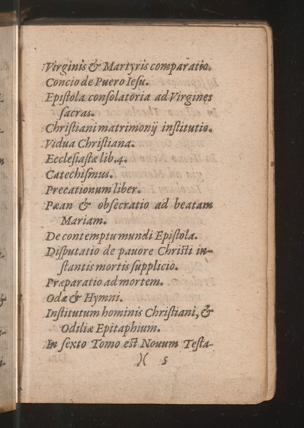 Virginis & Martyris comparatio.
Concio de Puero Iesu.
Epistola consolatoria ad Virgines
sacras.
Christiani matrimonij institutio.
Vidua Christiana.
Ecclesiastæ lib.4.
Catechismus.
Precationum liber.
Pæan & obsecratio ad beatam
Mariam.
De contemptu mundi Epistola.
Disputatio de pavore Christi in-
stantis mortis supplicio.
Præparatio ad mortem.
Odæ & Hymni.
Institutum hominis Christiani, &
Odiliæ Epitaphium.
In sexto Tomo est Novum Testa-
)( 5